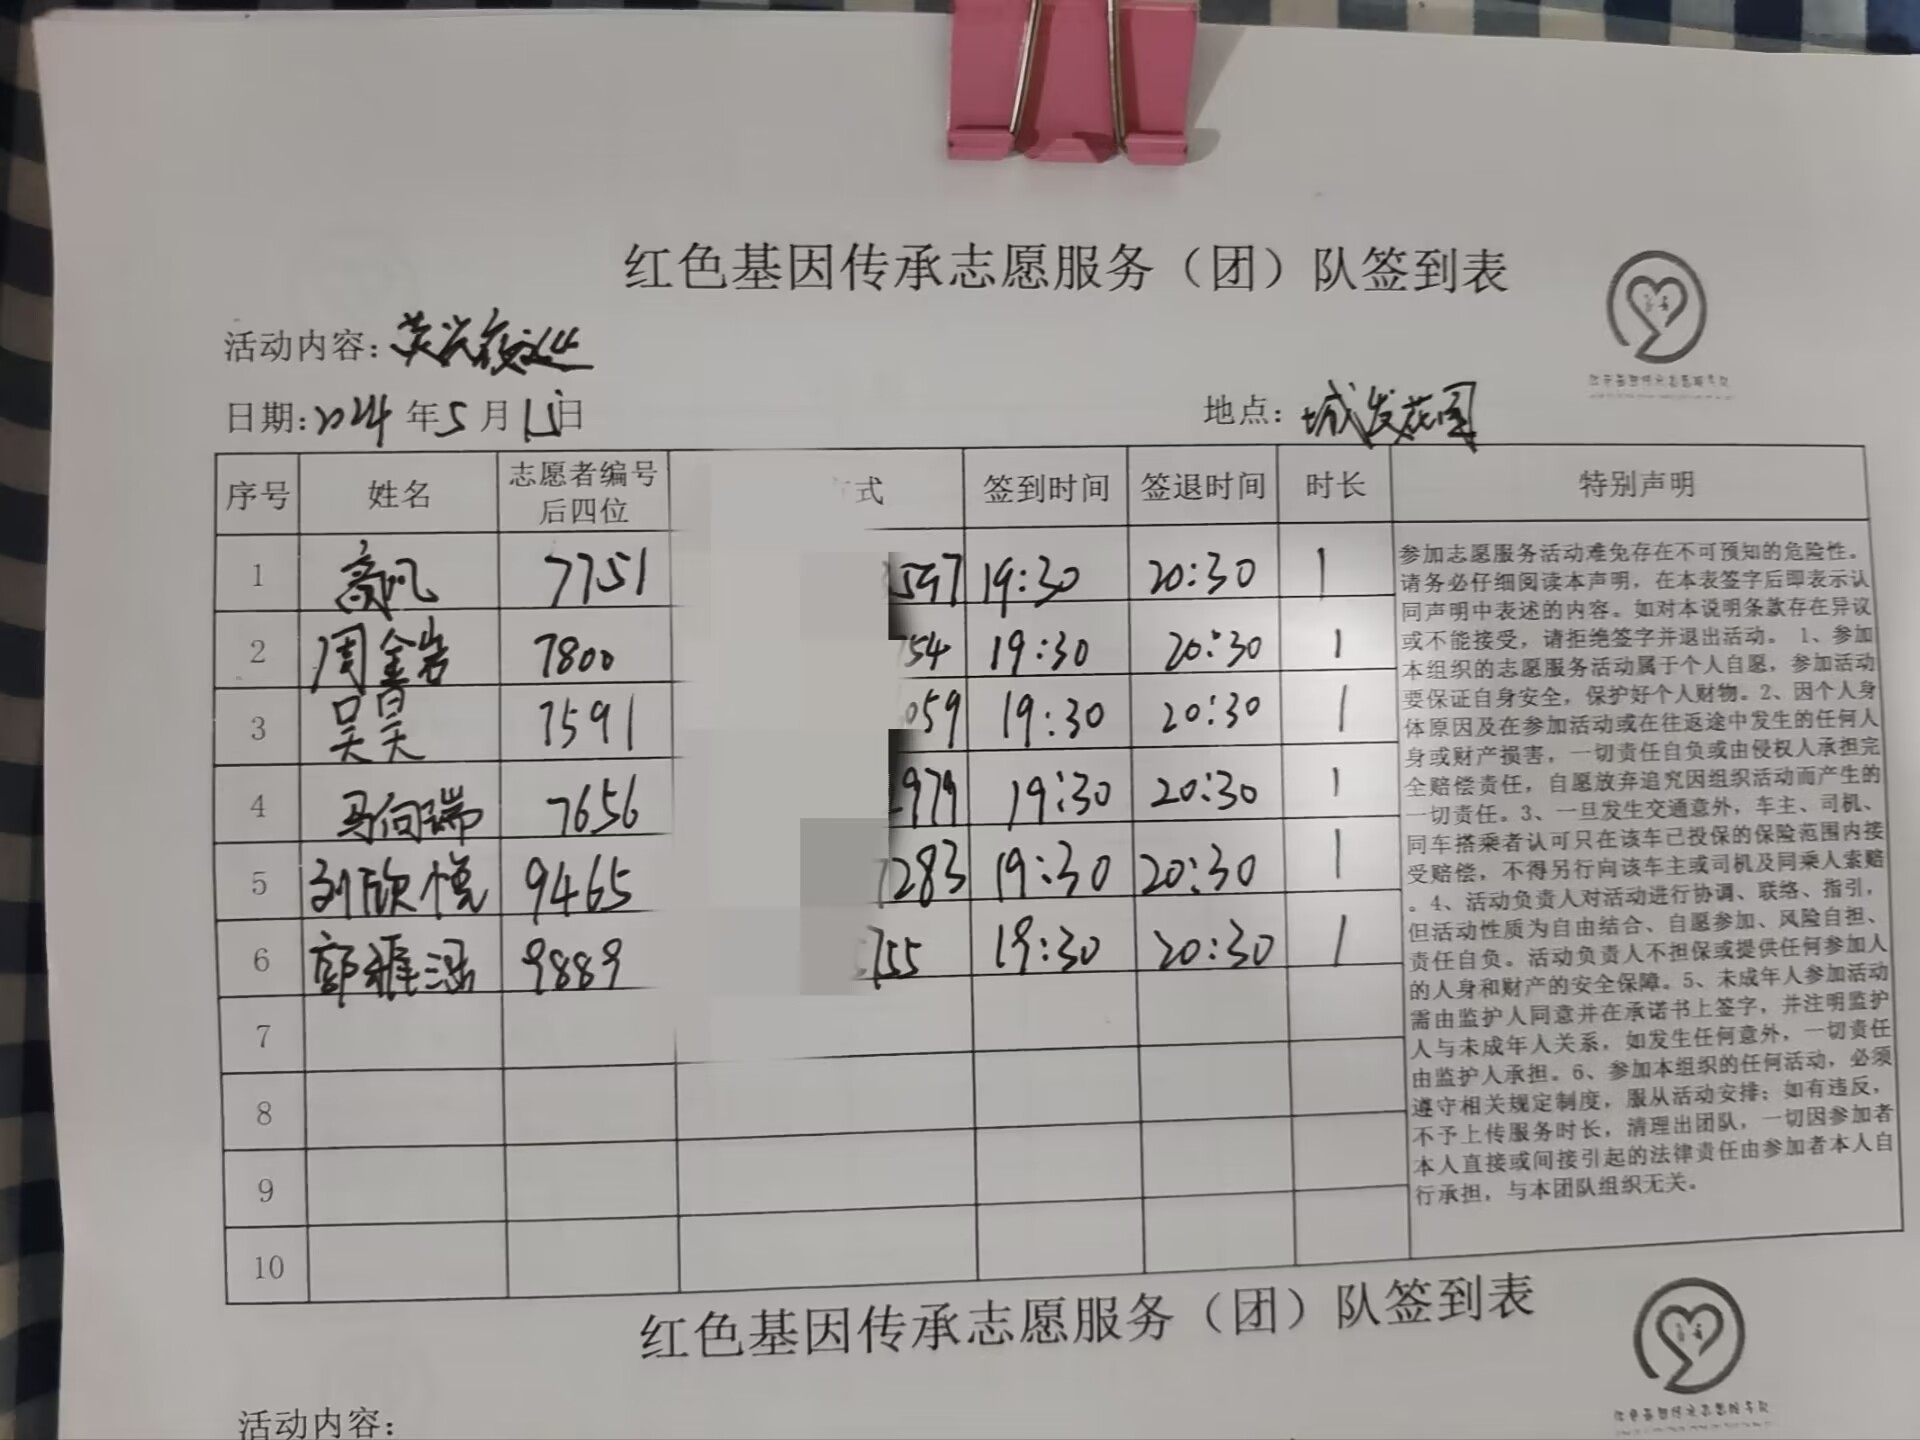 红色基因传承志愿服务（团）队签到表
活动内容：
日期：2024年5月15日
地点：城发花园
序号 姓名 志愿者编号后四位 式 签到时间 签退时间 时长 特别声明
1 高帆 7751 597 19:30 20:30 1
2 周鑫岩 7800 754 19:30 20:30 1
3 吴昊天 7591 059 19:30 20:30 1
4 马向瑞 7656 979 19:30 20:30 1
5 刘欣悦 9465 7283 19:30 20:30 1
6 郭雅涵 9889 5755 19:30 20:30 1
7
8
9
10
参加志愿服务活动难免存在不可预知的危险性。
请务必仔细阅读本声明，在本表签字后即表示认
同声明中表述的内容。如对本说明条款存在异议
或不能接受，请拒绝签字并退出活动。 1、参加
本组织的志愿服务活动属于个人自愿，参加活动
要保证自身安全，保护好个人财物。2、因个人身
体原因及在参加活动或在往返途中发生的任何人
身或财产损害，一切责任自负或由侵权人承担完
全赔偿责任，自愿放弃追究因组织活动而产生的
一切责任。3、一旦发生交通意外，车主、司机、
同车搭乘者认可只在该车已投保的保险范围内接
受赔偿，不得另行向该车主或司机及同乘人索赔
。4、活动负责人对活动进行协调、联络、指引，
但活动性质为自由结合、自愿参加、风险自担、
责任自负。活动负责人不担保或提供任何参加人
的人身和财产的安全保障。5、未成年人参加活动
需由监护人同意并在承诺书上签字，并注明监护
人与未成年人关系，如发生任何意外，一切责任
由监护人承担。6、参加本组织的任何活动，必须
遵守相关规定制度，服从活动安排；如有违反，
不予上传服务时长，清理出团队，一切因参加者
本人直接或间接引起的法律责任由参加者本人自
行承担，与本团队组织无关。
红色基因传承志愿服务（团）队签到表
活动内容：